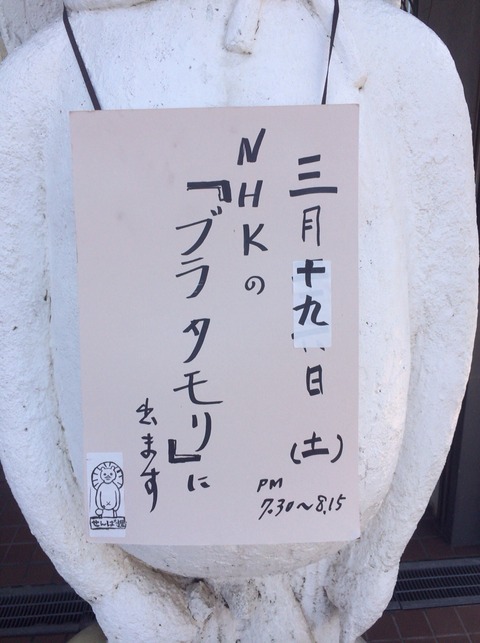 三月十九日(土)
PM
7.30〜8.15
NHKの
『ブラタモリ』に
出ます
せんば堤